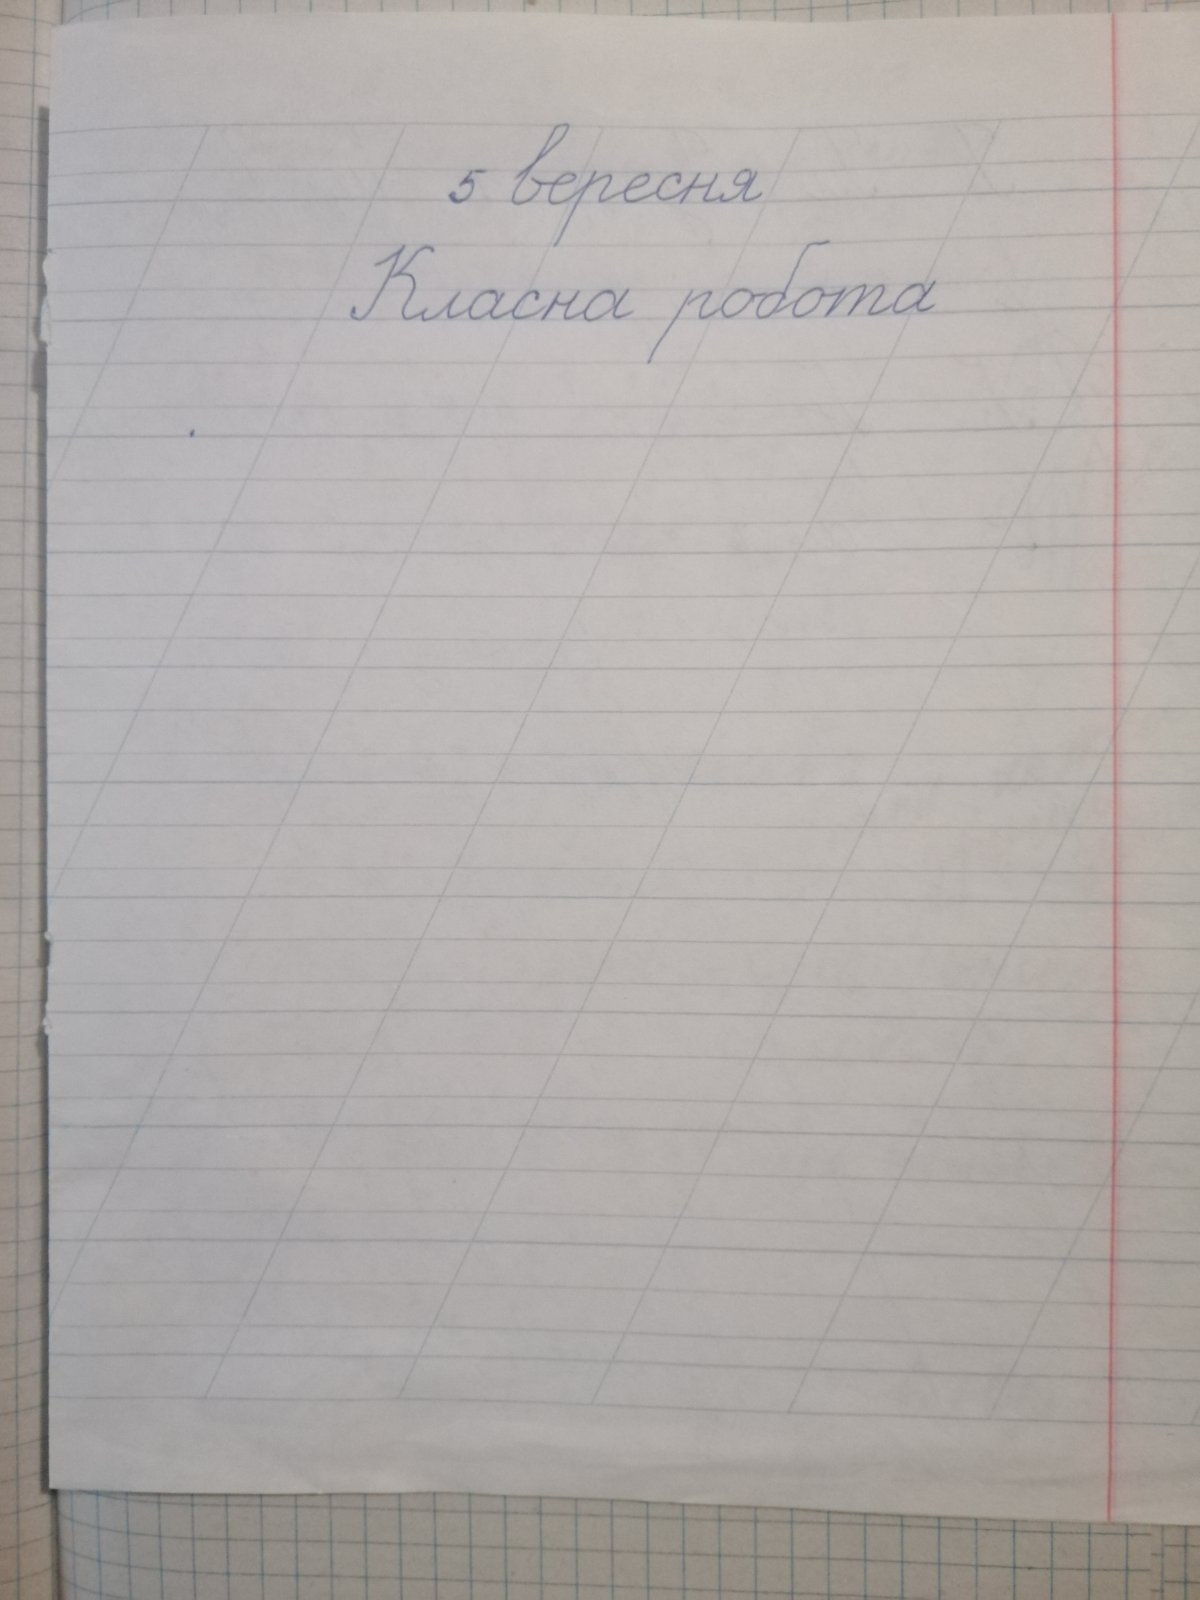 5 вересня
Класна робота